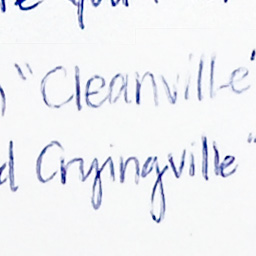 "Cleanville"
Cryingville"